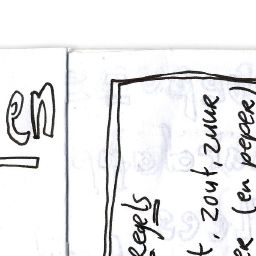 en
regels
t, zout, zuur
er (en peper)